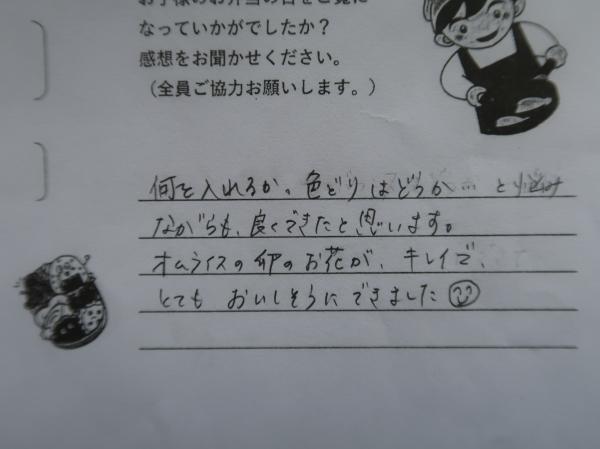 お子様のお弁当の日をご覧に
なっていかがでしたか？
感想をお聞かせください。
（全員ご協力お願いします。）
何を入れるか。色どりはどうか… と悩み
ながらも、良くできたと思います。
オムライスの卵のお花が、キレイで、
とても おいしそうにできました